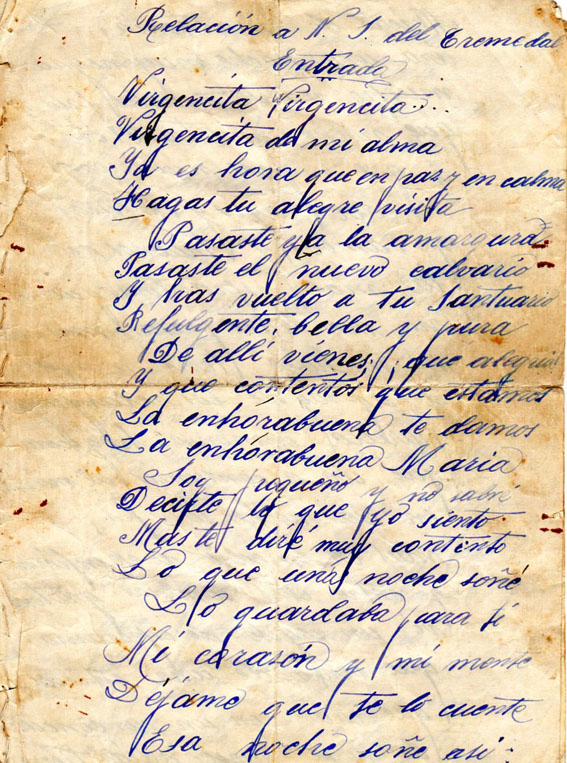 Relación a N. S. del Tremedal
Entrada
Virgencita Virgencita...
Virgencita de mi alma
Ya es hora que en paz y en calma
Hagas tu alegre visita
Pasaste ya la amargura
Pasaste el nuevo calvario
Y has vuelto a tu Santuario
Refulgente, bella y pura
De allí vienes; ¡que alegria
Y que contentos que estamos
La enhorabuena te damos
La enhorabuena Maria
Soy pequeño y no sabré
Decirte lo que yo siento
Mas te diré muy contento
Lo que una noche soñé
Lo guardaba para sí
Mi corasón y mi mente
Déjame que te lo cuente
Esa noche soñe asi: